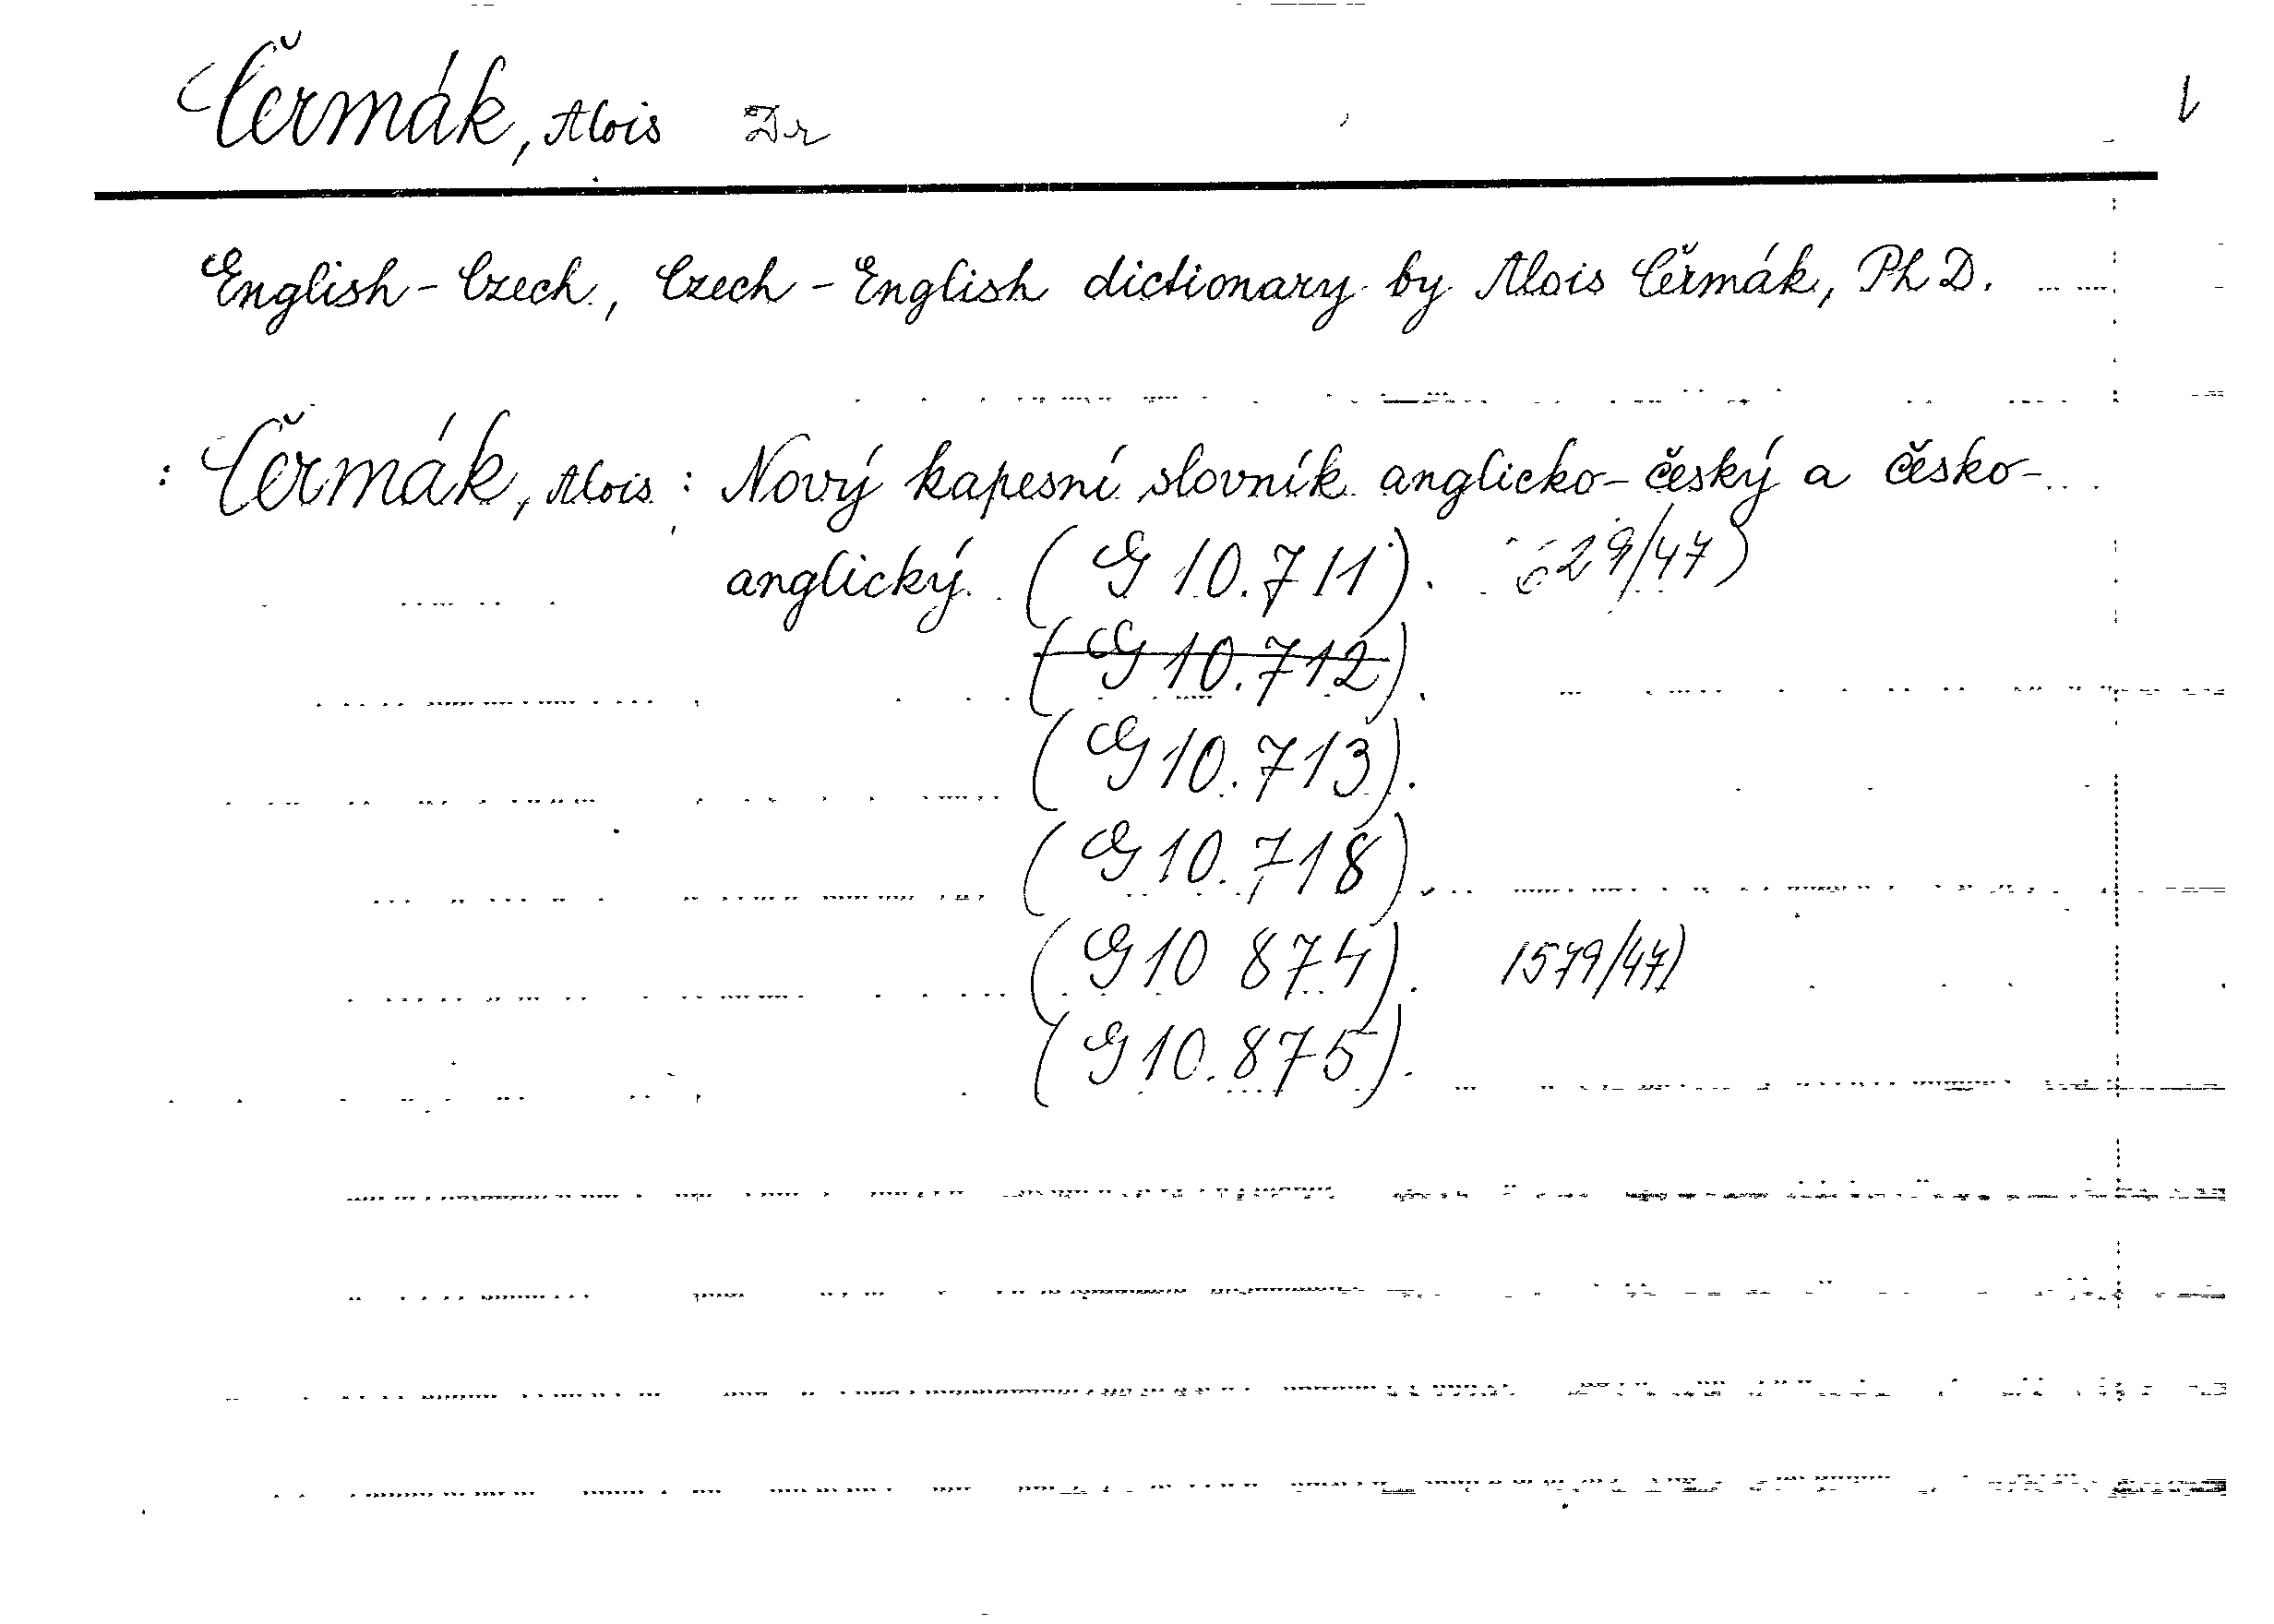 Čermák, Alois Dr
English - Czech, Czech - English dictionary by Alois Čermák, Ph D.
: Čermák, Alois : Nový kapesní slovník anglicko - český a česko -
anglický. (G 10.711). 29/47)
(G 10.712).
(G 10.713).
(G 10.718).
(G 10 874). 1579/47)
(G 10.875).